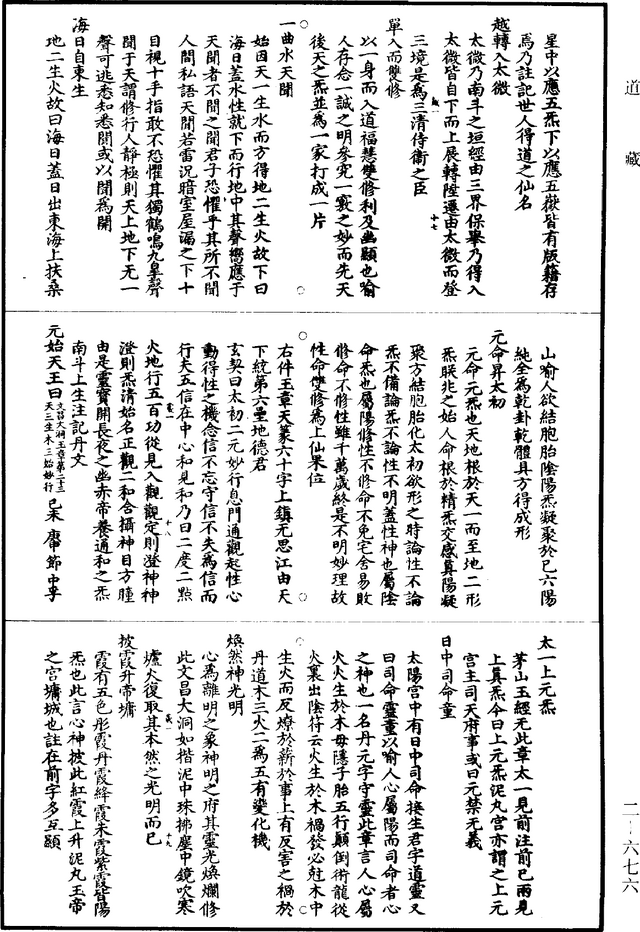 道藏
二-六七六
星中以應五炁下以應五嶽皆有版籍存
焉乃註記世人得道之仙名
越轉入太微
太微乃南斗之垣經由三界保舉乃得入
太微皆自下而上展轉陞遷由太微而登
三境是爲三清侍衞之臣
單入而雙修
以一身而入道福慧雙修利及幽顯也喻
人存念一誠之明參究一竅之妙而先天
後天之炁並爲一家打成一片
一曲水天聞
始因天一生水而方得地二生火故下曰
海日蓋水性就下而行地中其聲嚮應于
天聞者不聞之聞君子恐懼乎其所不聞
人間私語天聞若雷況暗室屋漏之下十
目視十手指敢不恐懼其獨鶴鳴九皐聲
聞于天謂修行人靜極則天上地下无一
聲可逃悉知悉聞或以聞爲開
海日自東生
地二生火故曰海日蓋日出東海上扶桑
山喻人欲結胞胎陰陽炁凝聚於已六陽
純全爲乾卦乾體具方得成形
元命昇太初
元命元炁也天地根於天一而至地二形
炁朕兆之始人命根於精炁交感算陽凝
聚方結胞胎化太初欲形之時論性不論
炁不備論炁不論性不明蓋性神也屬陰
命炁也屬陽修性不修命不免宅舍易敗
修命不修性雖千萬歲終是不明妙理故
性命雙修爲上仙果位
右件玉章天篆六十字上鎮无思江由天
下統第六壘地德君
玄契曰太初二元妙行息門通觀起性心
動得性之機念信不忘守信不失爲信而
行夫五信在中心和見和乃曰二度二點
火地行五百功從見入觀觀定則澄神神
澄則炁清始名正觀二和合攝神目方瞳
由是靈寶開長夜之幽赤帝養通和之炁
南斗上生注記丹文
元始天王曰 文昌大洞玉章第二十三 天三生木三始妙行 已未 庸節 中孚
太一上元炁
茅山玉經无此章太一見前注前已兩見
上眞炁今曰上元炁泥丸宫亦謂之上元
宫主司天府事或曰元禁无義
日中司命童
太陽宫中有日中司命接生君字道靈又
曰司命靈童以喻人心屬陽而司命者心
之神也一名丹元字守靈此章言人心屬
火火生於木毋隱子胎五行顚倒術龍從
火裏出陰符云火生於木禍發必尅木中
生火而反燎於薪於事上有反害之禍於
丹道木三火二爲五有變化機
煥然神光明
心爲離明之象神明之府其靈光煥爛修
此文昌大洞如揩泥中珠拂塵中鏡吹寒
爐火復取其本然之光明而已
披霞升帝墉
霞有五色彤霞丹霞絳霞朱霞紫霞皆陽
炁也此言心神披此紅霞上升泥丸玉帝
之宫墉城也註在前字多互顯